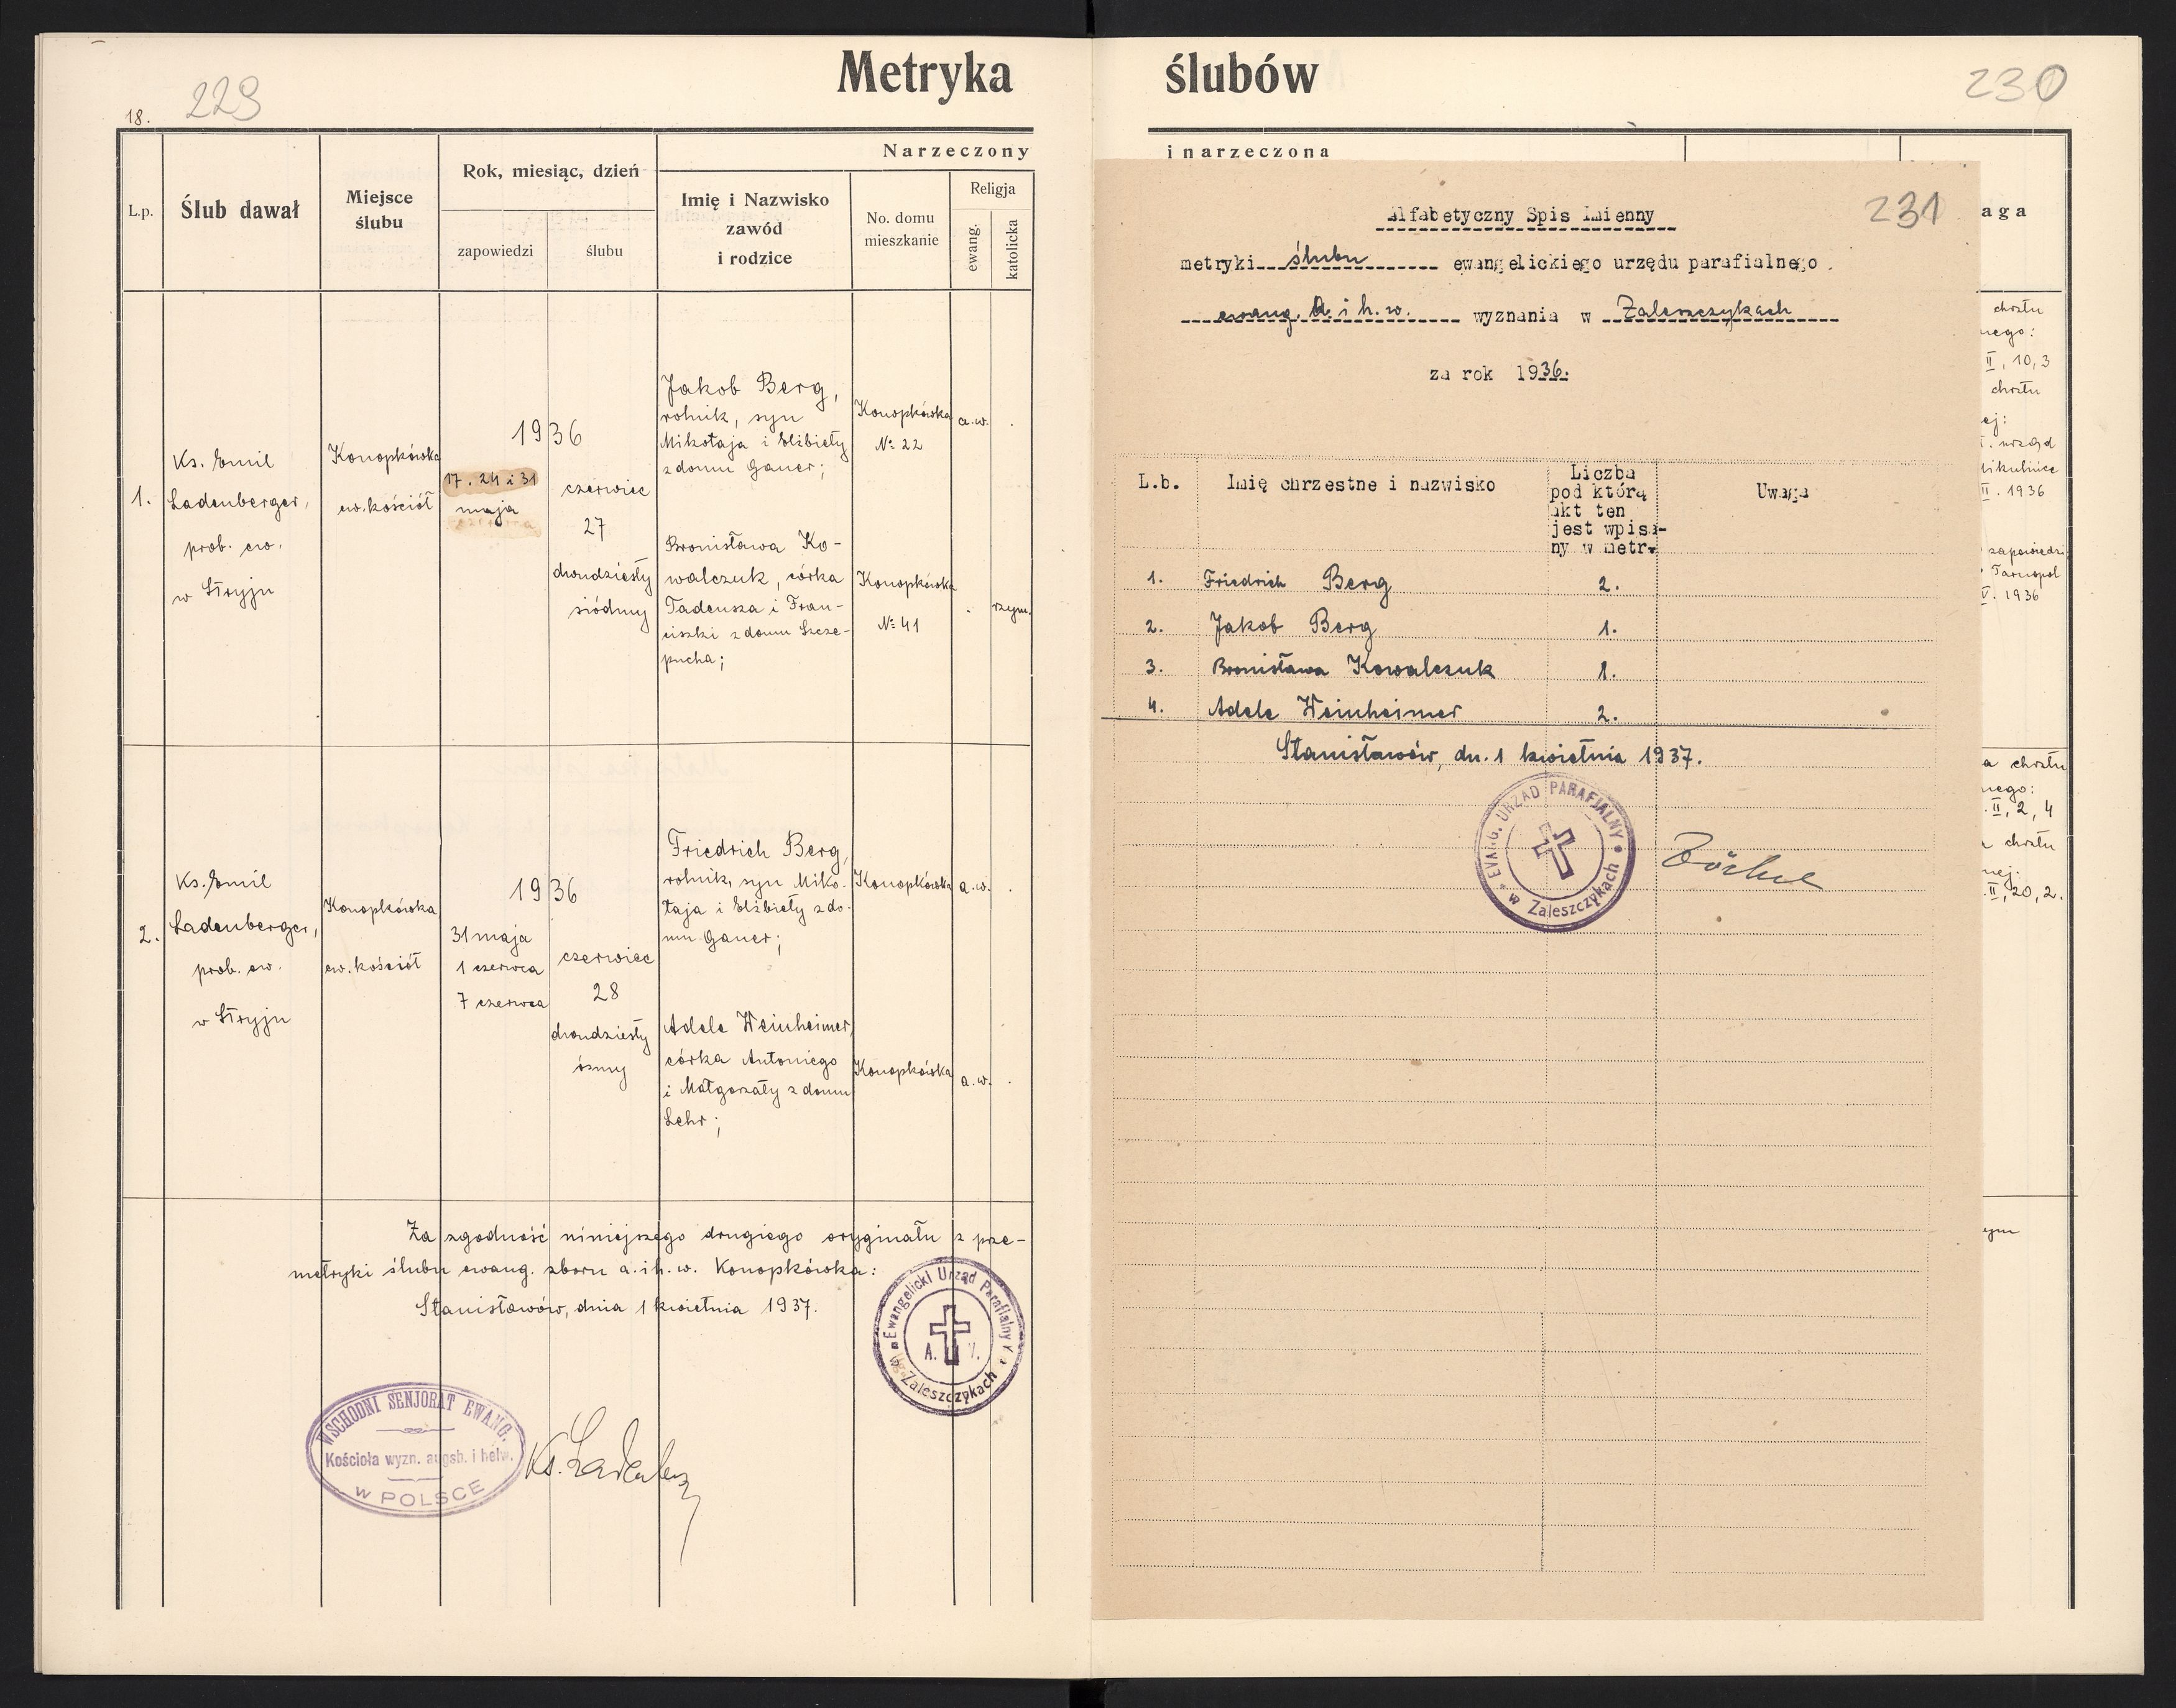 Metryka
18.
229
L.p.
Ślub dawał
Miejsce
ślubu
Rok, miesiąc, dzień
zapowiedzi
ślubu
Narzeczony
Imię i Nazwisko
zawód
i rodzice
No. domu
mieszkanie
Religja
ewang.
katolicka
1.
Ks. Emil
Ladenberger,
prob. ew.
w Stryju
Konopkówka
ew. kościół
1936
17. 24 i 31
maja
czerwiec
27
dwudziesty
siódmy
Jakob Berg,
rolnik, syn
Mikołaja i Elżbiety
z domu Gauer;
Konopkówka
№ 22
a.w.
.
Bronisława Ko-
walczuk, córka
Tadeusza i Fran-
ciszki z domu Szcze-
pucha;
Konopkówka
№ 41
.
rzym.
2.
Ks. Emil
Ladenberger,
prob. ew.
w Stryju
Konopkówka
ew. kościół
1936
31 maja
1 czerwca
7 czerwca
czerwiec
28
dwudziesty
ósmy
Friedrich Berg,
rolnik, syn Miko-
łaja i Elżbiety z do-
mu Gauer;
Konopkówka
a.w.
.
Adele Weinheimer,
córka Antoniego
i Małgorzaty z domu
Lehr;
Konopkówka
a.w.
.
Za zgodność niniejszego drugiego oryginału z pze-
metryki ślubu ewang. zboru a. i h. w. Konopkówka:
Stanisławów, dnia 1 kwietnia 1937.
Ewangelicki Urząd Parafialny
A. V.
Zaleszczykach
WSCHODNI SENJORAT EWANG.
Kościoła wyzn. augsb. i helw.
w POLSCE
Ks. Ladenberger
ślubów
230
i narzeczona
aga
231
Alfabetyczny Spis Imienny
metryki ślubu ewangelickiego urzędu parafialnego
ewang. a. i h. w. wyznania w Zaleszczykach
za rok 1936.
L.b.
Imię chrzestne i nazwisko
Liczba
pod którą
akt ten
jest wpisa-
ny w metr.
Uwaga
1. Friedrich Berg 2.
2. Jakob Berg 1.
3. Bronisława Kowalczuk 1.
4. Adele Weinheimer 2.
Stanisławów, dn. 1 kwietnia 1937.
EVANG. URZAD PARAFIALNY
w Zaleszczykach
chrztu
nego:
II, 10,3
chrztu
ej:
. urząd
Mikulińce
II. 1936
zapowiedzi
Tarnopol
V. 1936
a chrztu
nego:
. II, 2, 4
chrztu
nej:
. II, 20, 2.